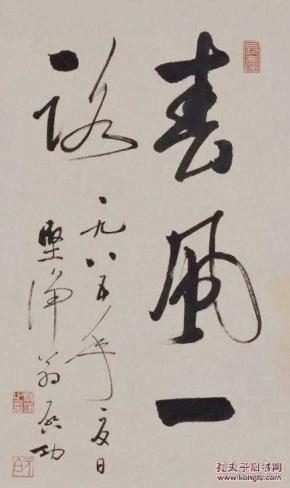 春風一
路
一九八五年夏日
堅淨翁啟功
孔夫子旧书网